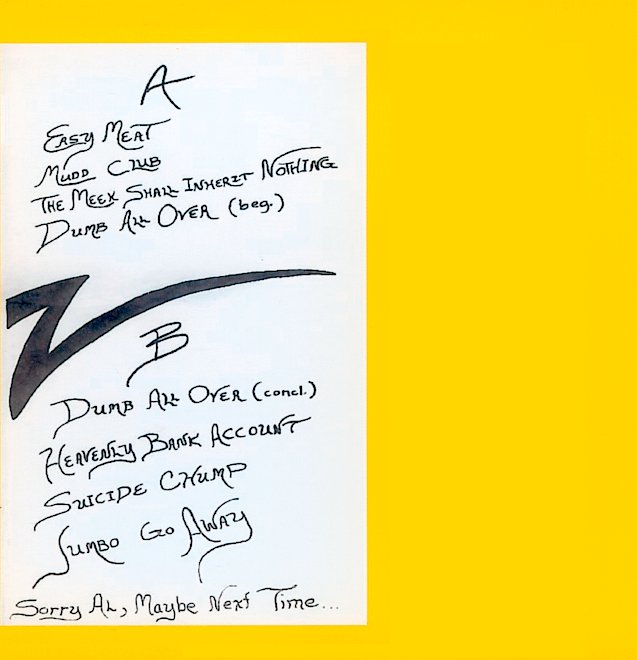 A
Easy Meat
Mudd Club
The Meek Shall Inherit Nothing
Dumb All Over (beg.)
B
Dumb All Over (concl.)
Heavenly Bank Account
Suicide Chump
Jumbo Go Away
Sorry Al, Maybe Next Time...